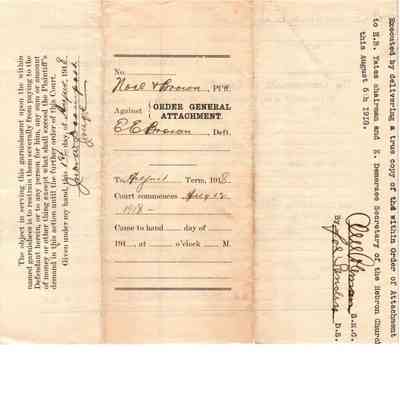 The object in serving this garnishment upon the within
named garnishees is to restrain them severally from paying to the
Defendant herein, or to any person for him, any sum or amount
of money or other thing except what shall exceed the Plaintiff's
demand in this action until the further order of this Court.
Given under my hand, this 1st day of August, 1918
Judge
No.
Noel & Brown, Pltf.
Against
ORDER GENERAL
ATTACHMENT.
E E Brown, Deft.
To August Term, 1918
Court commences Aug 12
1918 -
Came to hand day of
191 , at o'clock M.
Executed by delivering a true copy of the within Order of Attachment
to H.B. Yates chairman and K. Demaree Secretary of the Hebron Church
this August 6th 1918.
S.H.C.
By Joe D.S.